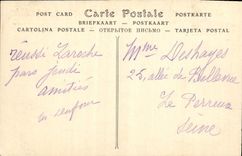 POST CARD Carte Postale POSTKARTE
BRIEFKAART — POSTKAART
CARTOLINA POSTALE — ОТКРЫТОЕ ПИСЬМО — TARJETA POSTAL
réussi Laroche
pars jeudi
amitiés
Mme Deshayes
25, allée de Bellevue
Le Perreux
Seine